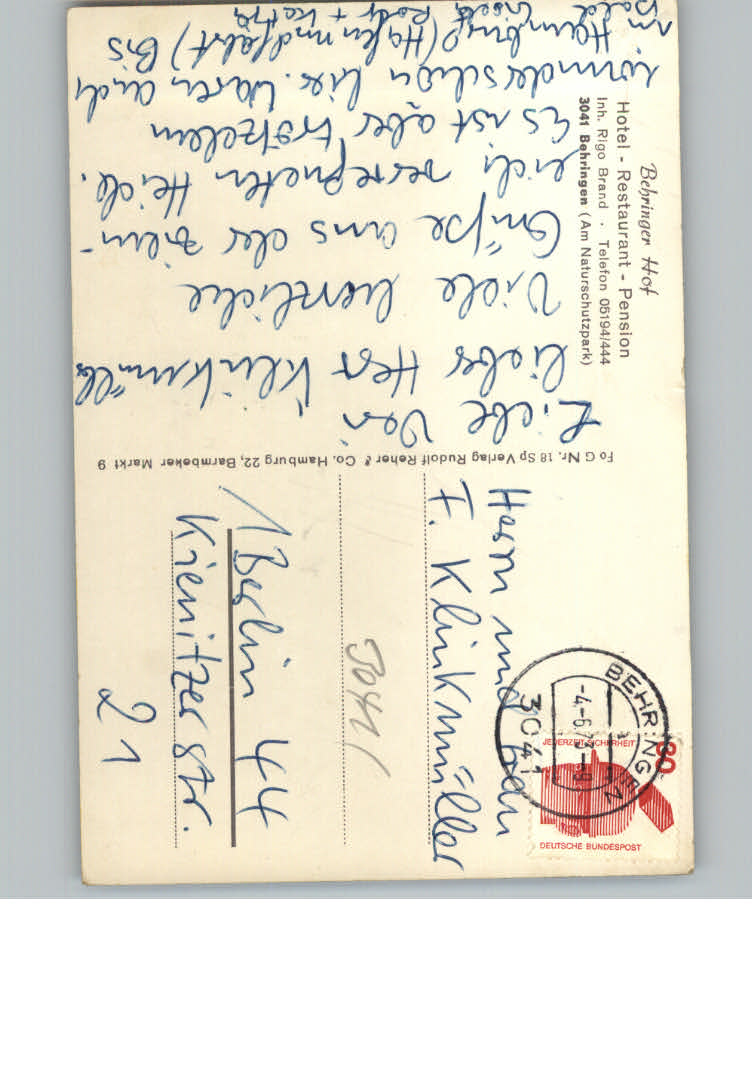 Behringer Hof
Hotel - Restaurant - Pension
Inh. Rigo Brand · Telefon 05194/444
3041 Behringen (Am Naturschutzpark)
Liebe Vevi
lieber Herr Klinkmüller
Viele herzliche
Grüße aus der ziem-
lich verregneten Heide.
Es ist aber trotzdem
wunderschön hier. Waren auch
in Hamburg (Hafenrundfahrt) Bis
bald Gisela, Rolf + Katja
Fo G Nr. 18 Sp Verlag Rudolf Reher & Co. Hamburg 22, Barmbeker Markt 9
Herrn und Frau
F. Klinkmüller
1 Berlin 44
Kienitzer Str.
21
3041
BEHRINGEN
-4.-6.73-
3041
JEDERZEIT SICHERHEIT
30
DEUTSCHE BUNDESPOST